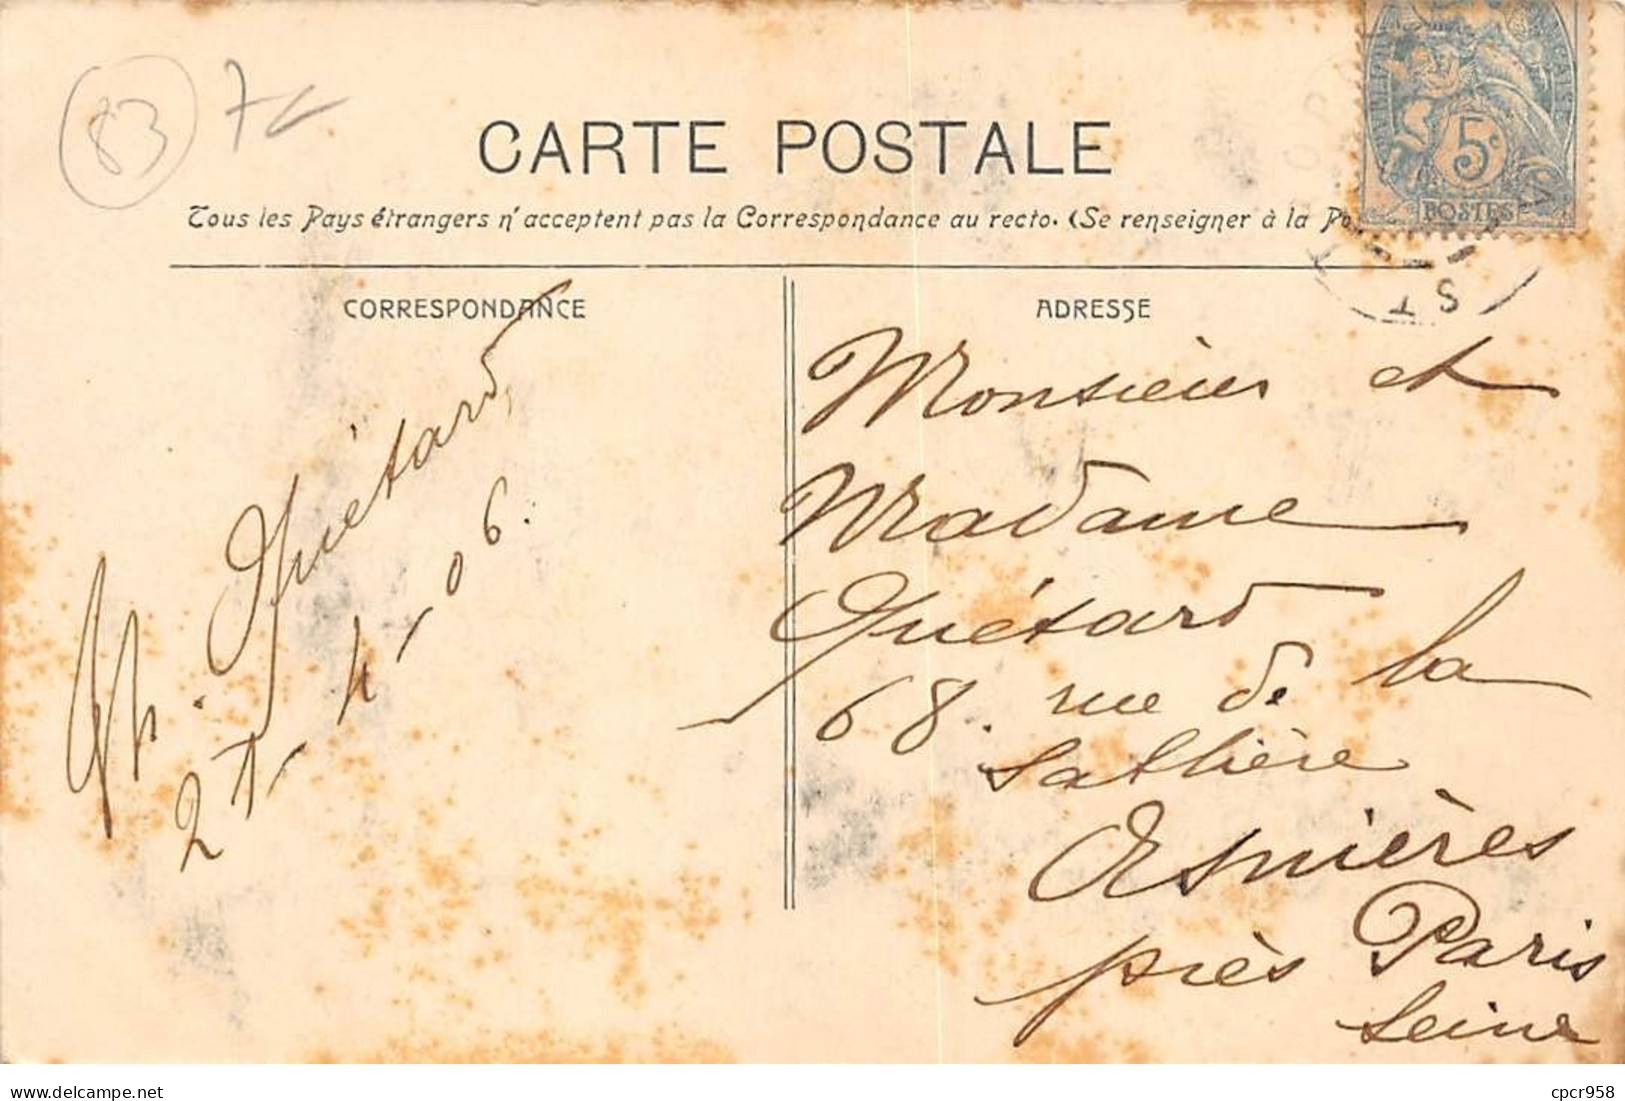 83
7€
CARTE POSTALE
Tous les Pays étrangers n'acceptent pas la Correspondance au recto. (Se renseigner à la Po
5c
POSTES
CORRESPONDANCE
ADRESSE
Ch. Guétard,
27-4-06.
Monsieur et
Madame
Guétard
68. rue de la
Sablière
Asnières
près Paris
Seine
delcampe.net
cpcr958